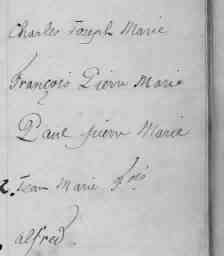 Charles Joseph Marie
François Pierre Marie
Paul pierre Marie
2. Jean Marie
alfred.